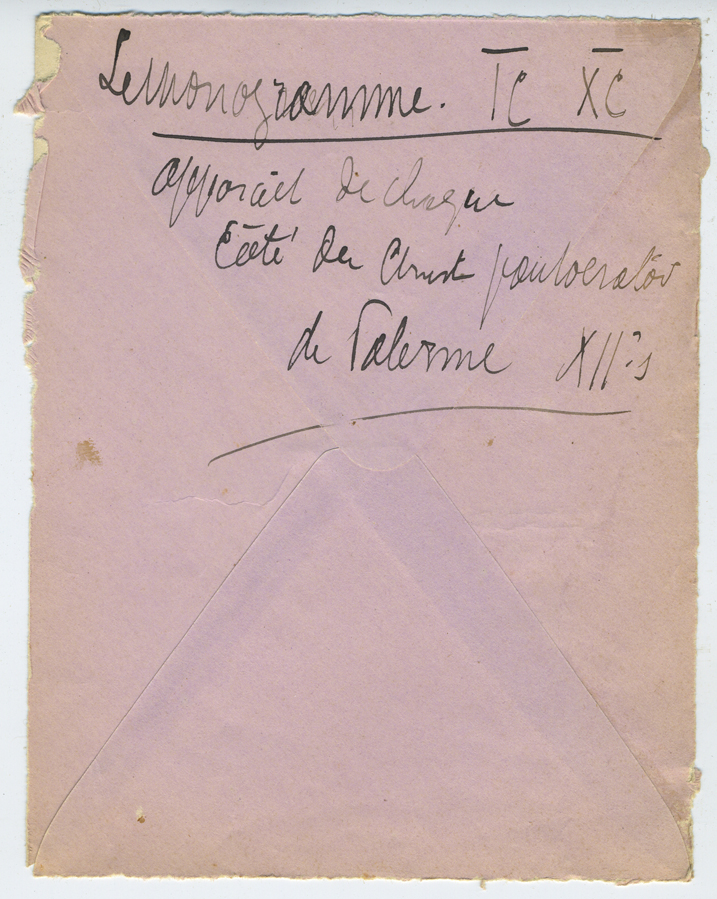 Le monogramme. I̅C X̅C
apparait de chaque
Côté du Christ pantocrator
de Palerme XIIe s